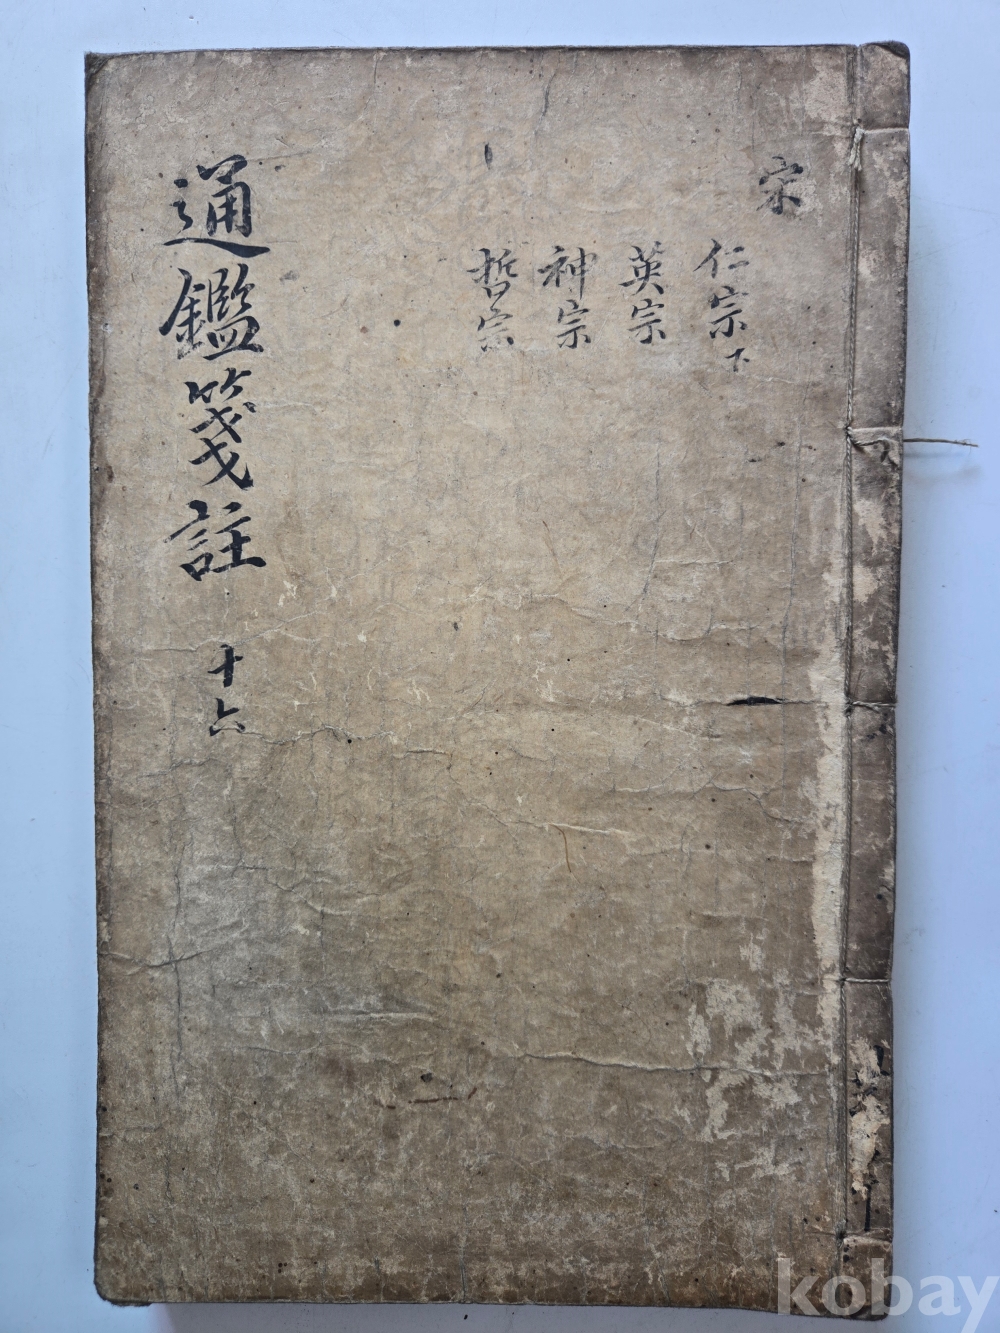 宋
仁宗下
英宗
神宗
哲宗
通鑑箋註 十六
kobay